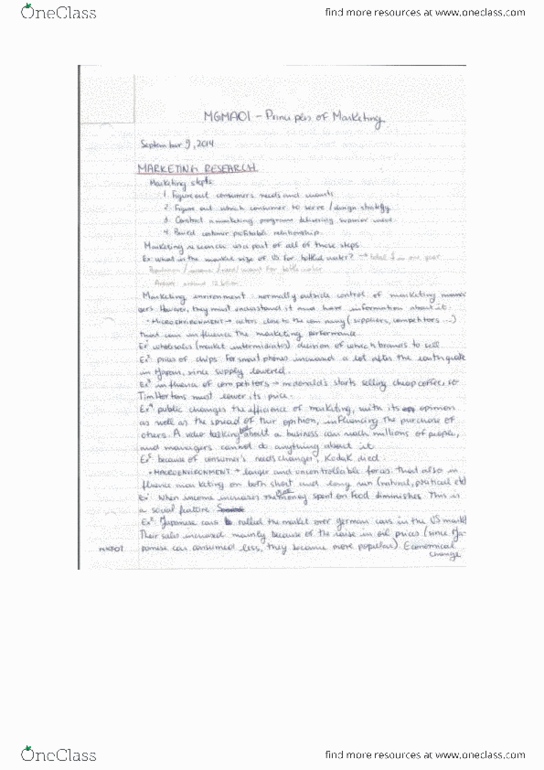 OneClass
find more resources at www.oneclass.com
MGMA01 - Principles of Marketing
September 9, 2014
MARKETING RESEARCH
Marketing steps:
1. Figure out consumers needs and wants
2. Figure out which consumer to serve / design strategy
3. Construct a marketing program delivering superior value
4. Build customer profitable relationship.
Marketing research is a part of all of these steps
Ex: what is the market size of US for bottled water? → total $ in one year
Marketing environment: normally outside control of marketing
However, they must understand it must have information about it.
• MICROENVIRONMENT → actors close to the company (suppliers, competitors...)
that can influence the marketing performance.
Ex: wholesales (market intermediates) decision of which brands to sell
Ex²: prices of chips for smart phones increased a lot after the earthquake
in Japan, since supply lowered.
Ex³ influence of competitors → mcdonald's starts selling cheap coffee, so
Tim Hortons must lower its price.
Ex⁴ public changes the efficience of marketing, with its opinion
as well as the spread of their opinion, influencing the purchase of
others. A video talking about a business can reach millions of people,
and managers cannot do anything about it.
Ex⁵ because of consumer's needs changes, Kodak died.
• MACROENVIRONMENT → larger and uncontrollable forces that also in
fluence marketing on both short and long run (natural, political etc)
Ex: When income increases the money spent on food diminishes. This is
a social feature
Ex²: Japanese cars ruled the market over german cars in the US market
Their sales increased mainly because of the raise in oil prices (since Ja-
panese car consumed less, they became more popular). Economical
change
OneClass
find more resources at www.oneclass.com